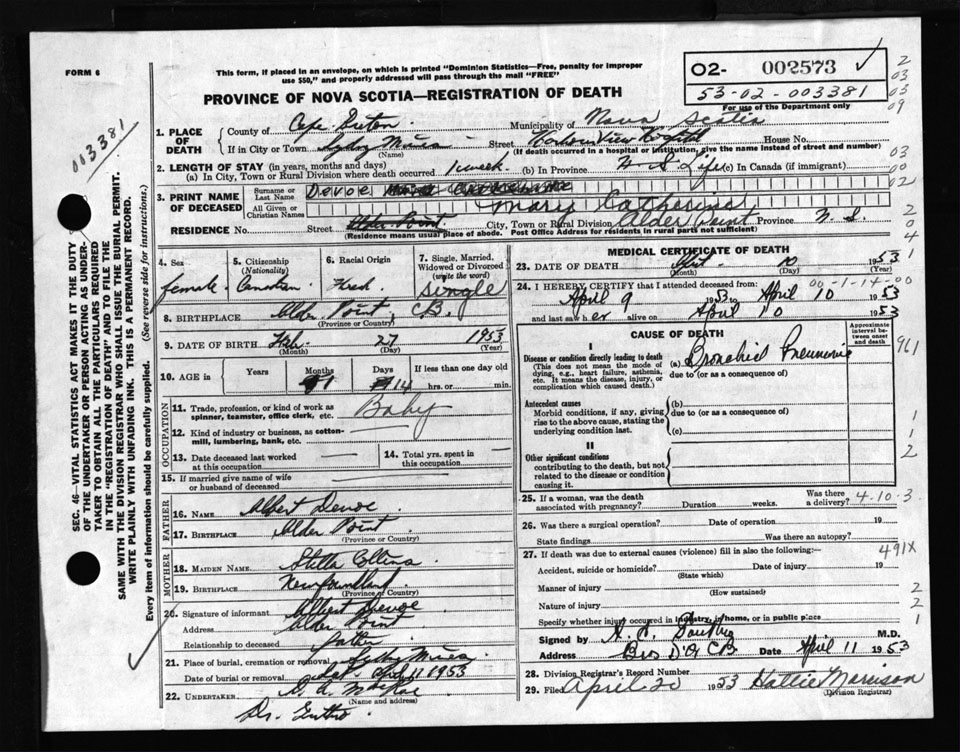 FORM 6
This form, if placed in an envelope, on which is printed "Dominion Statistics—Free, penalty for improper
use $50," and properly addressed will pass through the mail "FREE"
02- 002573
53-02-003381
For use of the Department only
003381
PROVINCE OF NOVA SCOTIA—REGISTRATION OF DEATH
1. PLACE OF DEATH
County of Cape Breton Municipality of Nova Scotia
If in City or Town Sydney Mines (Name) Street Harbor View Hospital House No.
(If death occurred in a hospital or institution, give the name instead of street and number)
2. LENGTH OF STAY (in years, months and days)
(a) In City, Town or Rural Division where death occurred 1 week. (b) In Province N S Life (c) In Canada (if immigrant)
3. PRINT NAME OF DECEASED
Surname or Last Name Devoe
All Given or Christian Names Mary Catherine
RESIDENCE No. Street City, Town or Rural Division Alder Point Province N. S.
(Residence means usual place of abode. Post Office Address for residents in rural parts not sufficient)
4. Sex female
5. Citizenship (Nationality) Canadian
6. Racial Origin
7. Single, Married, Widowed or Divorced (write the word) Single
8. BIRTHPLACE Alder Point, C.B. (Province or Country)
9. DATE OF BIRTH Feb. (Month) 27 (Day) 1953 (Year)
10. AGE in Years Months 1 Days 14 If less than one day old hrs. or min.
OCCUPATION
11. Trade, profession, or kind of work as spinner, teamster, office clerk, etc. Baby
12. Kind of industry or business, as cotton-mill, lumbering, bank, etc.
13. Date deceased last worked at this occupation
14. Total yrs. spent in this occupation
15. If married give name of wife or husband of deceased
FATHER
16. NAME Albert Devoe
17. BIRTHPLACE Alder Point (Province or Country)
MOTHER
18. MAIDEN NAME Stella Collins
19. BIRTHPLACE Newfoundland (Province or Country)
20. Signature of informant Albert
Address Alder Point
Relationship to deceased father
21. Place of burial, cremation or removal Sydney Mines
Date of burial or removal April 11 1953
22. UNDERTAKER (Name and address)
MEDICAL CERTIFICATE OF DEATH
23. DATE OF DEATH (Month) 10 (Day) 1953 (Year)
24. I HEREBY CERTIFY that I attended deceased from: 00-1-14-00
April 9 1953 to April 10 1953
and last saw her alive on April 10 1953
CAUSE OF DEATH
Approximate interval between onset and death
I
Disease or condition directly leading to death (a) Bronchial Pneumonia
(This does not mean the mode of dying, e.g., heart failure, asthenia, etc. It means the disease, injury, or complication which caused death.)
due to (or as a consequence of)
Antecedent causes (b)
Morbid conditions, if any, giving rise to the above cause, stating the underlying condition last.
due to (or as a consequence of)
(c)
II
Other significant conditions contributing to the death, but not related to the disease or condition causing it.
25. If a woman, was the death associated with pregnancy? Duration weeks. Was there a delivery? 4-10-3
26. Was there a surgical operation? Date of operation 19
State findings Was there an autopsy?
27. If death was due to external causes (violence) fill in also the following:— 491X
Accident, suicide or homicide? (State which) Date of injury 19
Manner of injury (How sustained)
Nature of injury
Specify whether injury occurred in industry, in home, or in public place
Signed by M.D.
Address Date April 11 1953
28. Division Registrar's Record Number
29. Filed April 20 1953 Hattie Morrison
(Division Registrar)
SEC. 46—VITAL STATISTICS ACT MAKES IT THE DUTY
OF THE UNDERTAKER OR PERSON ACTING AS UNDER-
TAKER TO OBTAIN ALL THE PARTICULARS REQUIRED
IN THE "REGISTRATION OF DEATH" AND TO FILE THE
SAME WITH THE DIVISION REGISTRAR WHO SHALL ISSUE THE BURIAL PERMIT.
WRITE PLAINLY WITH UNFADING INK. THIS IS A PERMANENT RECORD.
Every item of information should be carefully supplied. (See reverse side for instructions.)
2
03
03
09
03
00
02
2
0
4
1
961
1
1
2
2
2
1